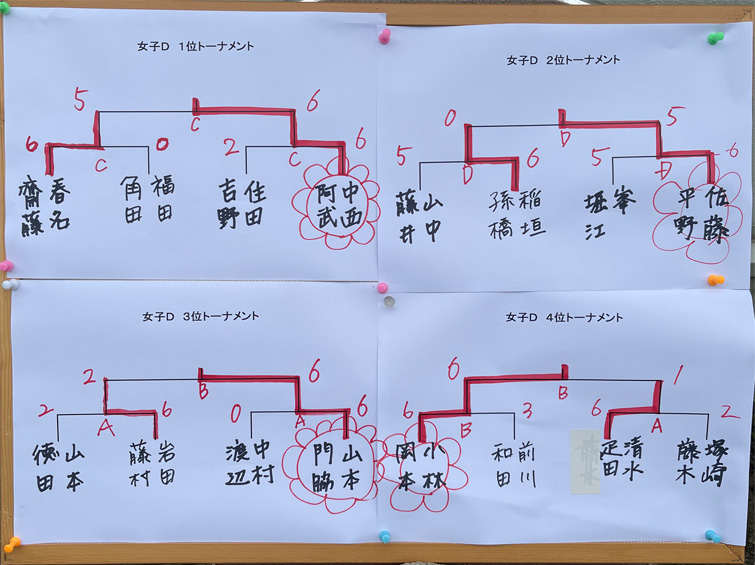 女子D 1位トーナメント
5 6
C
6 0 2 6
C C
春名 齋藤
福田 角田
住田 吉野
中西 阿武
女子D 2位トーナメント
0 5
D
5 6 5 6
D D
山中 藤井
稲垣 孫橋
峯 堀江
佐藤 平野
女子D 3位トーナメント
2 6
B
2 6 0 6
A A
山本 徳田
岩田 藤村
中村 渡辺
山本 門脇
女子D 4位トーナメント
6 1
B
6 3 6 2
B A
小林 岡本
前川 和田
清水 疋田
塚崎 藤木